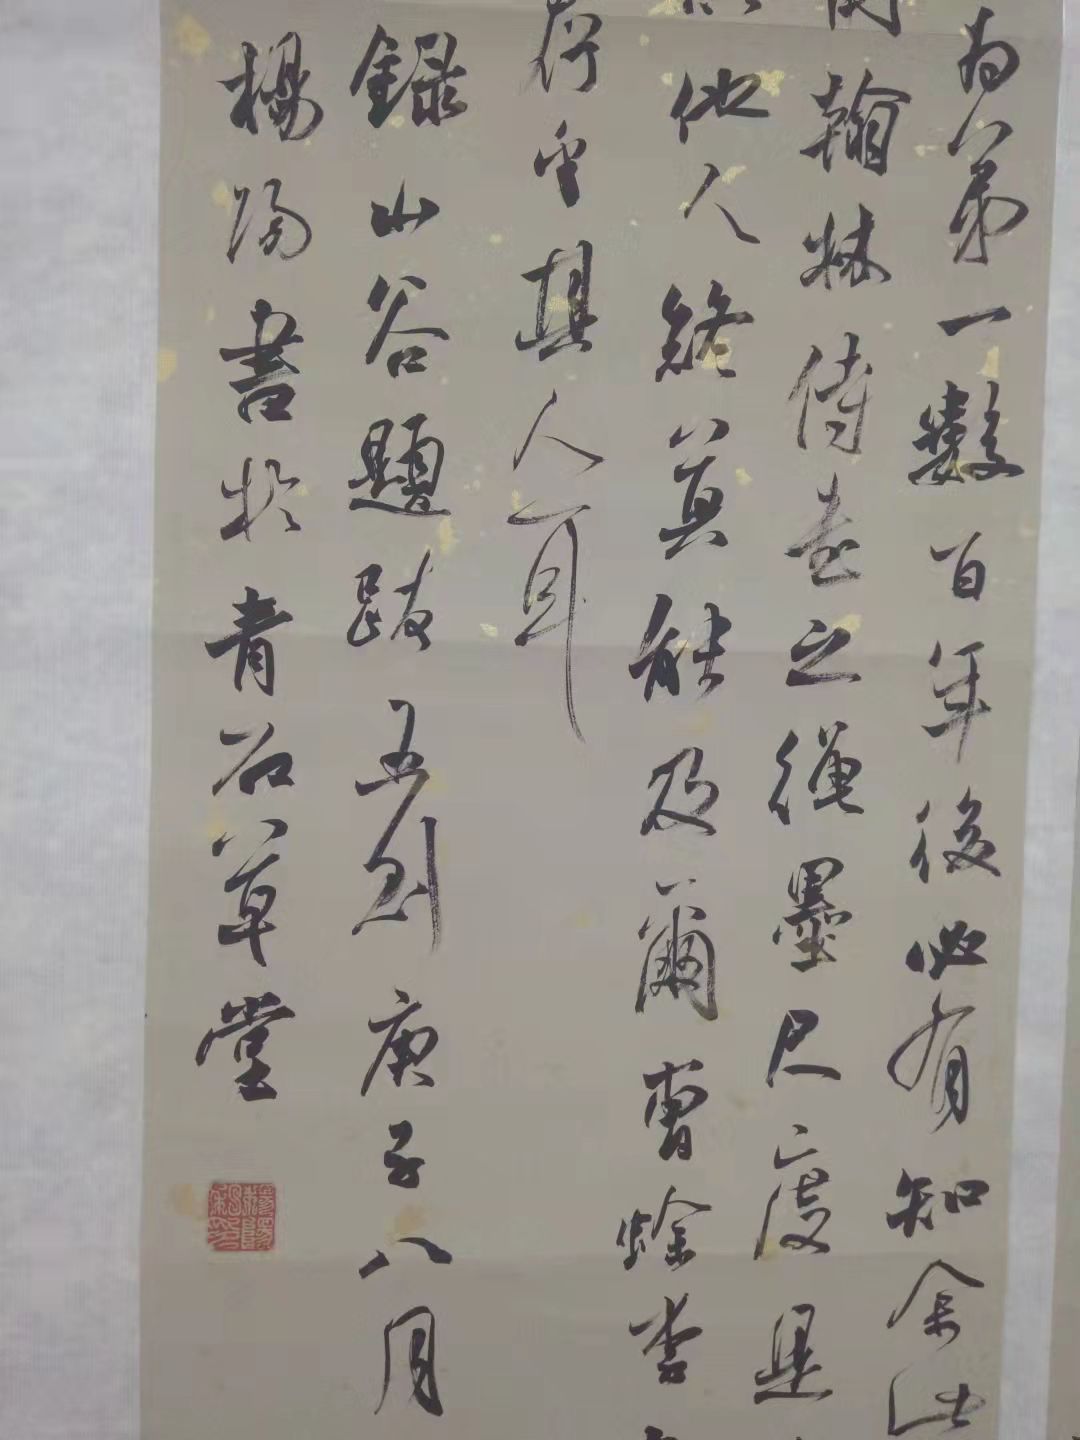 為第一數百年後必有知余此
翰林侍書之繩墨尺度是
他人終莫能及爾曹蜍李
乎其人耳
錄山谷題跋五則庚子八月
楊陽書於青石草堂